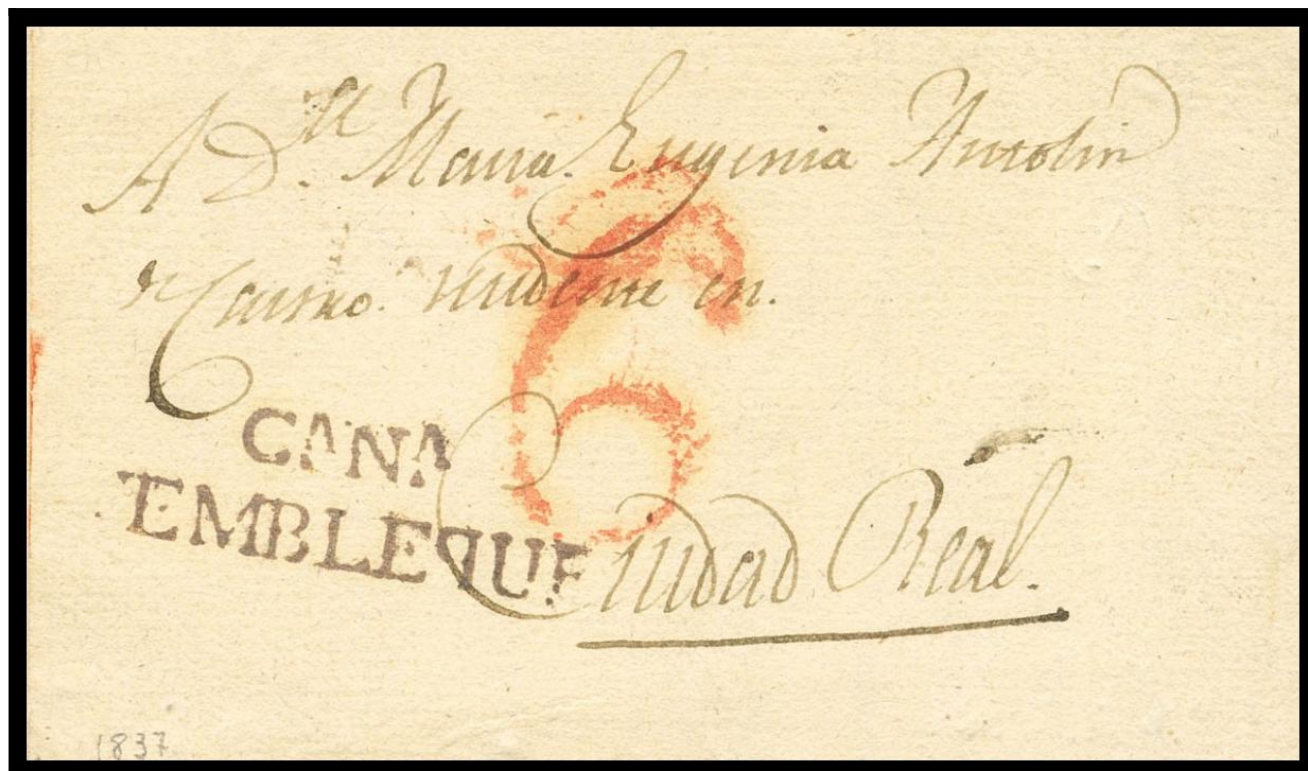 A D.ª Maria Eugenia Antolin
Castro. residente en.
6
CANA
TEMBLEQUE
Ciudad Real.
1837